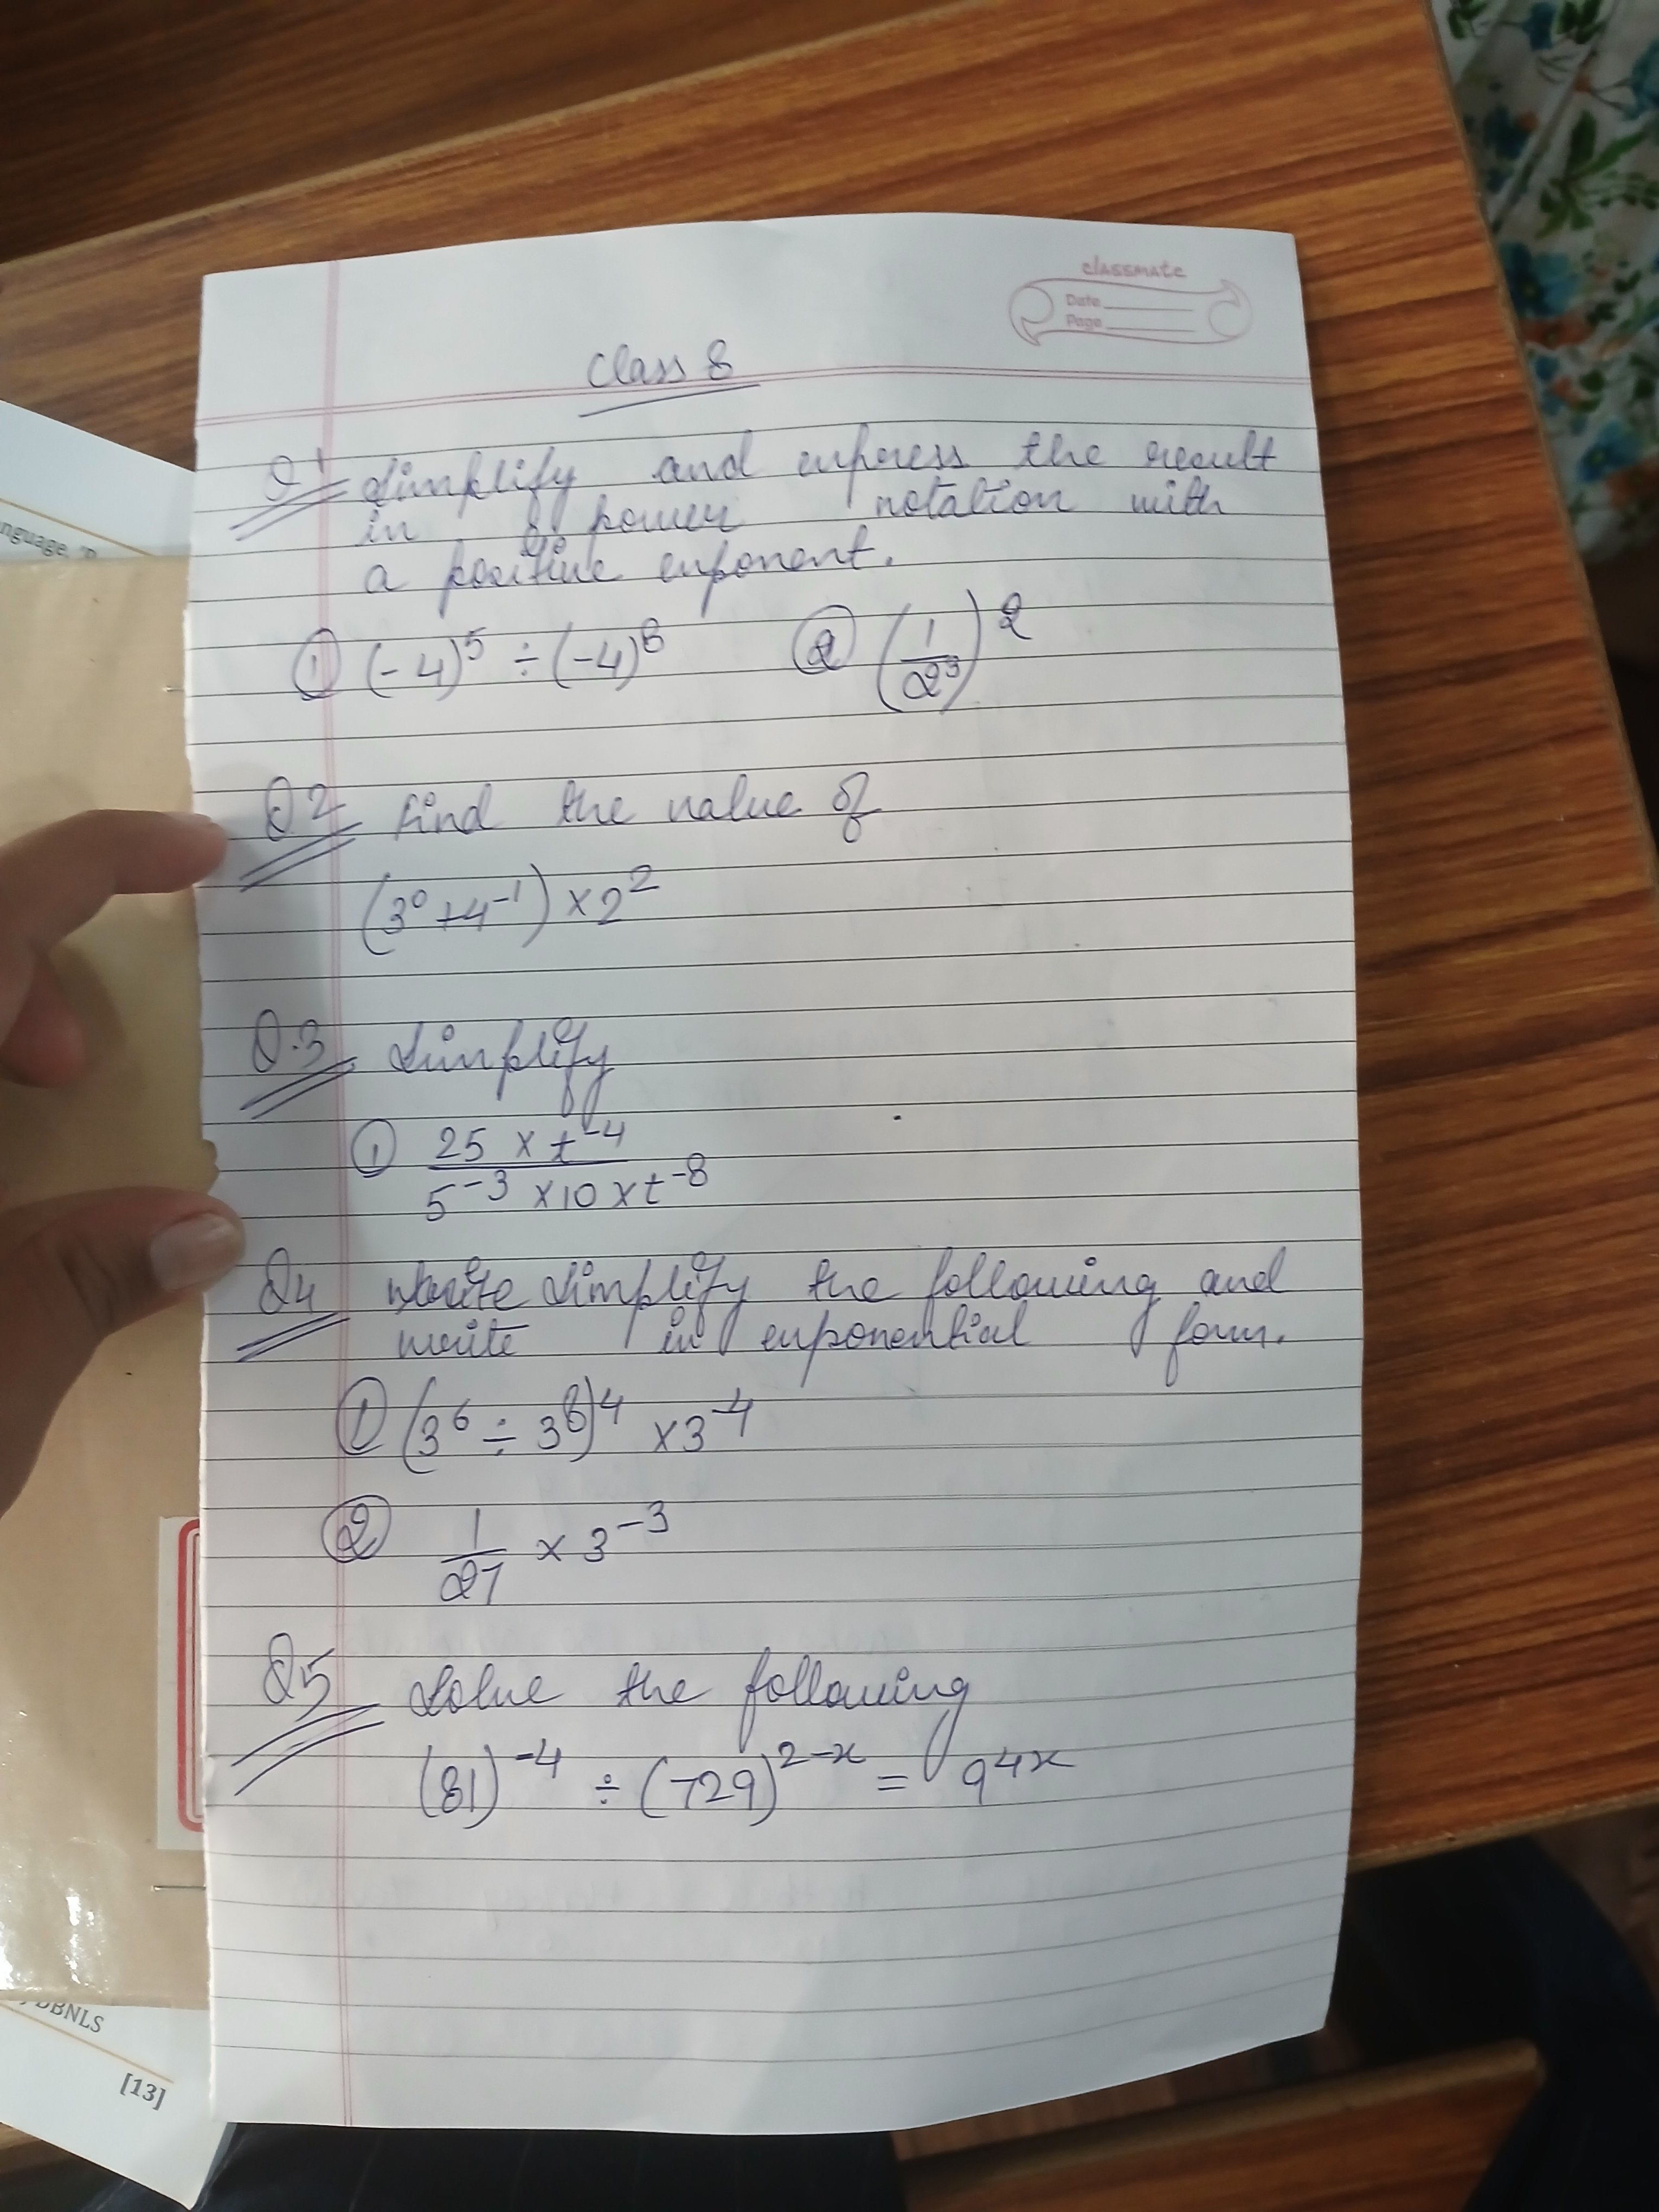 classmate
Date
Page
Class 8
Q1 Simplify and express the result
in power notation with
a positive exponent.
① (-4)⁵ ÷ (-4)⁸ ② (1/2³)²
Q2 Find the value of
(3⁰+4⁻¹) × 2²
Q.3 Simplify
① 25 × t⁻⁴
5⁻³ × 10 × t⁻⁸
Q4 Simplify the following and
write in exponential form.
① (3⁶ ÷ 3⁸)⁴ × 3⁻⁴
② 1/27 × 3⁻³
Q5 Solve the following
(81)⁻⁴ ÷ (729)²⁻ˣ = 9⁴ˣ
nguage
DBNLS
[13]